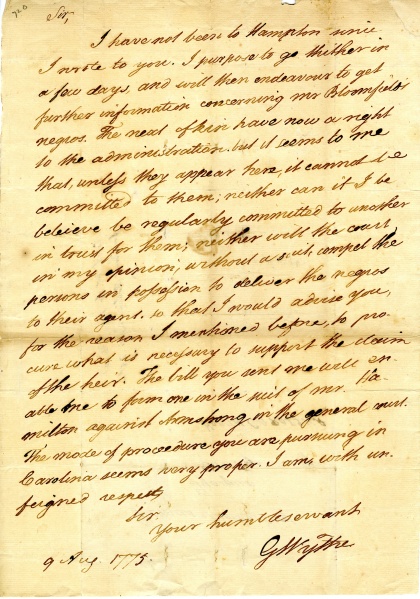 Sir,
I have not been to Hampton since
I wrote to you. I purpose to go thither in
a few days, and will then endeavour to get
further information concerning mr Bloomfield's
negros. The next of kin have now a right
to the administration. but it seems to me
that, unless they appear here, it cannot be
committed to them; neither can it I be
beleieve be regularly committed to another
in trust for them; neither will the court
in my opinion, without a suit, compel the
persons in possession to deliver the negros
to their agent. so that I would advise you,
for the reason I mentioned before, to pro
cure what is necessary to support the claim
of the heir. The bill you sent me will en
able me to form one in the suit of mr. Ha
milton against Armstrong in the general court.
The mode of procedure you are pursuing in
Carolina seems very proper. I am, with un
feigned respect,
Sir
Your humble servant
9 Aug. 1775.
G Wythe